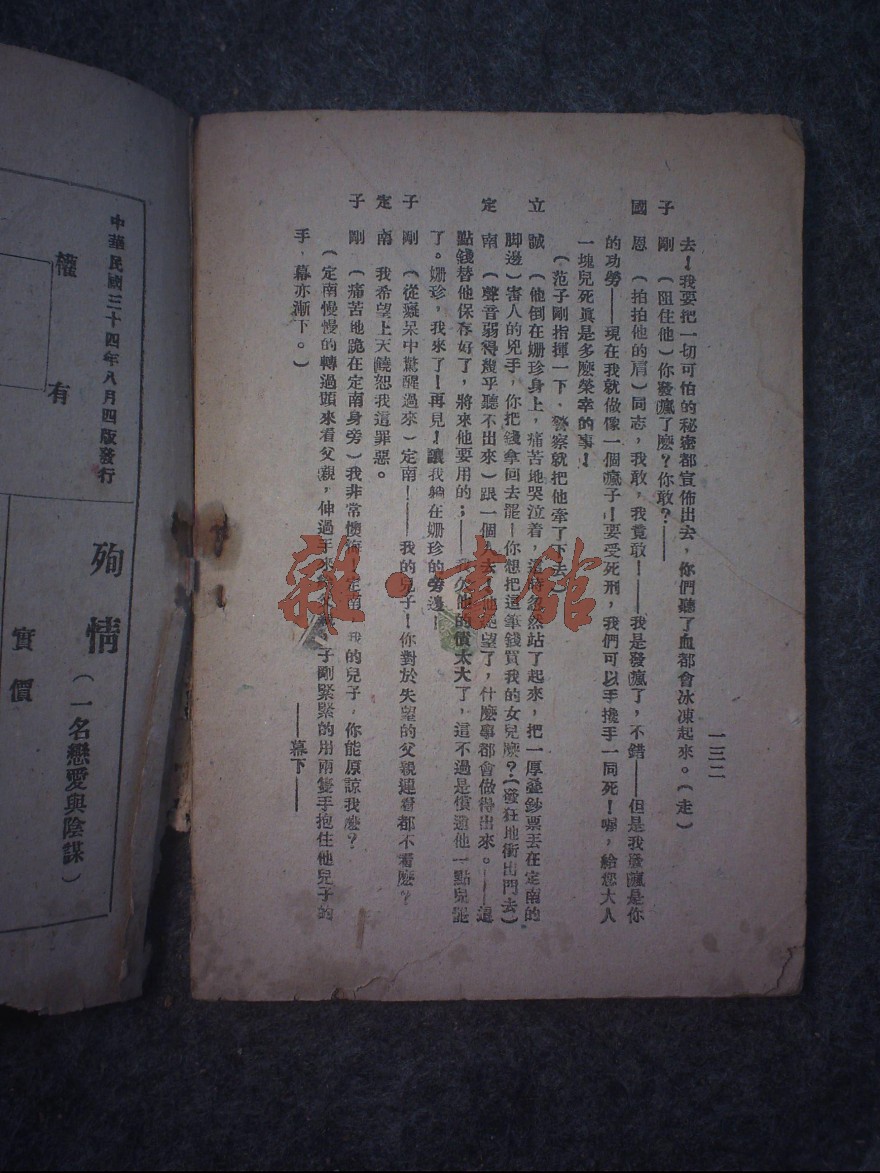 一三二
去！我要把一切可怕的秘密都宣佈出去，你們聽了血都會冰凍起來。（走）
子　剛　（阻住他）你發瘋了麼？你敢？——
國　恩　（拍拍他的肩）同志，我敢，我竟敢！——我是發瘋了，不錯——但是我發瘋是你
的功勞——現在我就做像一個瘋子！要受死刑，我們可以手攙手一同死！喔，給您大人
一塊兒死眞是多麼榮幸的事！
（范子剛指揮一下，警察就把他牽了下去）
立　誠　（他倒在姍珍身上，痛苦地哭泣着，這時忽然站了起來，把一厚叠鈔票丟在定南的
脚邊）審人的兇手，你把錢拿回去罷！你想把這筆錢買我的女兒麼？（發狂地衝出門去）
定　南　（聲音弱得幾乎聽不出來）跟一個去，他絕望了，什麼事都會做得出來。——這
點錢替他保存好了，將來他要用的；——欠他的債太大了，這不過是償還他一點兒罷
了。姍珍，我來了！再見！讓我躺在姍珍的旁邊——
子　剛　（從癡呆中驚醒過來）定南！——我的兒子！你對於失望的父親連看都不看麼？
定　南　我希望上天饒恕我這罪惡。
子　剛　（痛苦地跪在定南身旁）我非常懊悔，定南，我的兒子，你能原諒我麼？
（定南慢慢的轉過頭來看父親，伸過手來，子剛緊緊的用兩隻手抱住他兒子的
手，幕亦漸下。）
——幕下——
中華民國三十四年八月四版發行
權有
殉情（一名戀愛與陰謀）
實價
雜·書館